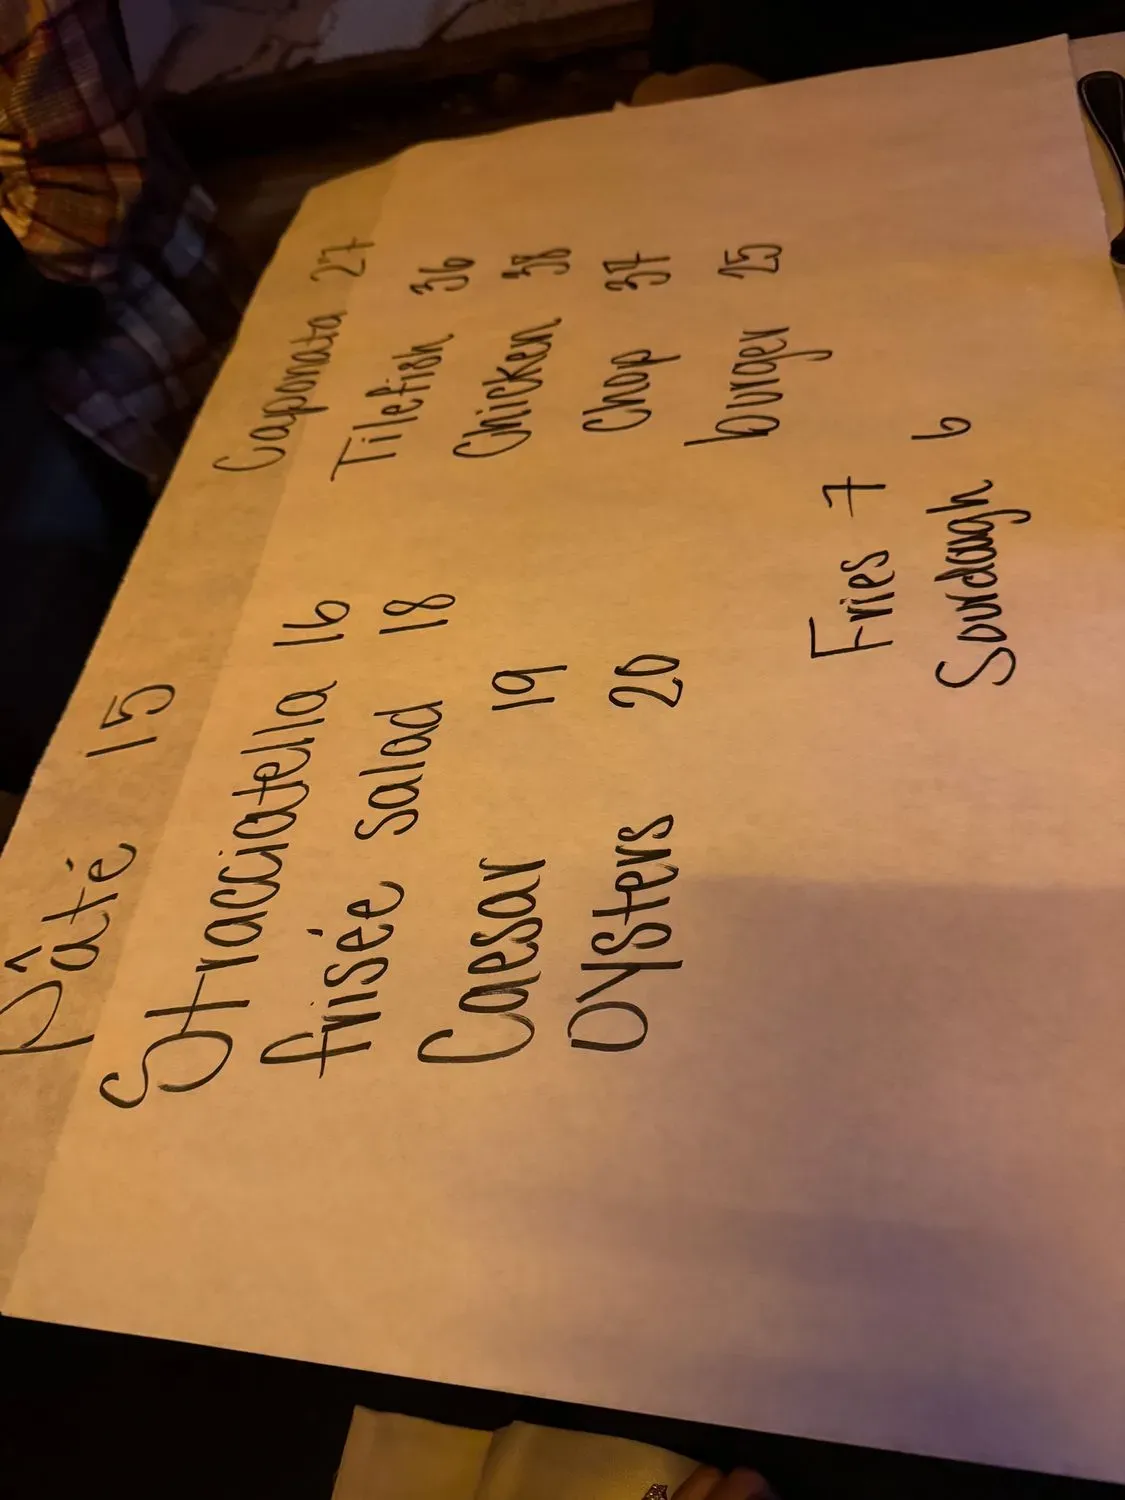 Pâté 15
Stracciatella 16
frisée salad 18
Caesar 19
Oysters 20
Caponata 27
Tilefish 36
Chicken 38
Chop 37
burger 25
Fries 7
Sourdough 6